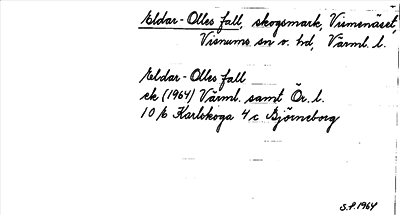 Eldar-Olles fall, skogsmark, Vismenäset,
Visnums sn o. hd, Värml. l.
Eldar-Olles fall
ek (1964) Värml. samt Ör. l.
10 E Karlskoga 4 c Björneborg
S.F. 1964